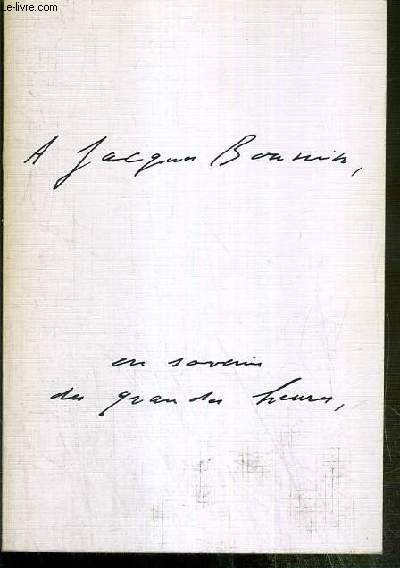 Le-livre.com
A Jacques Bounin,
en souvenir
des grandes heures,